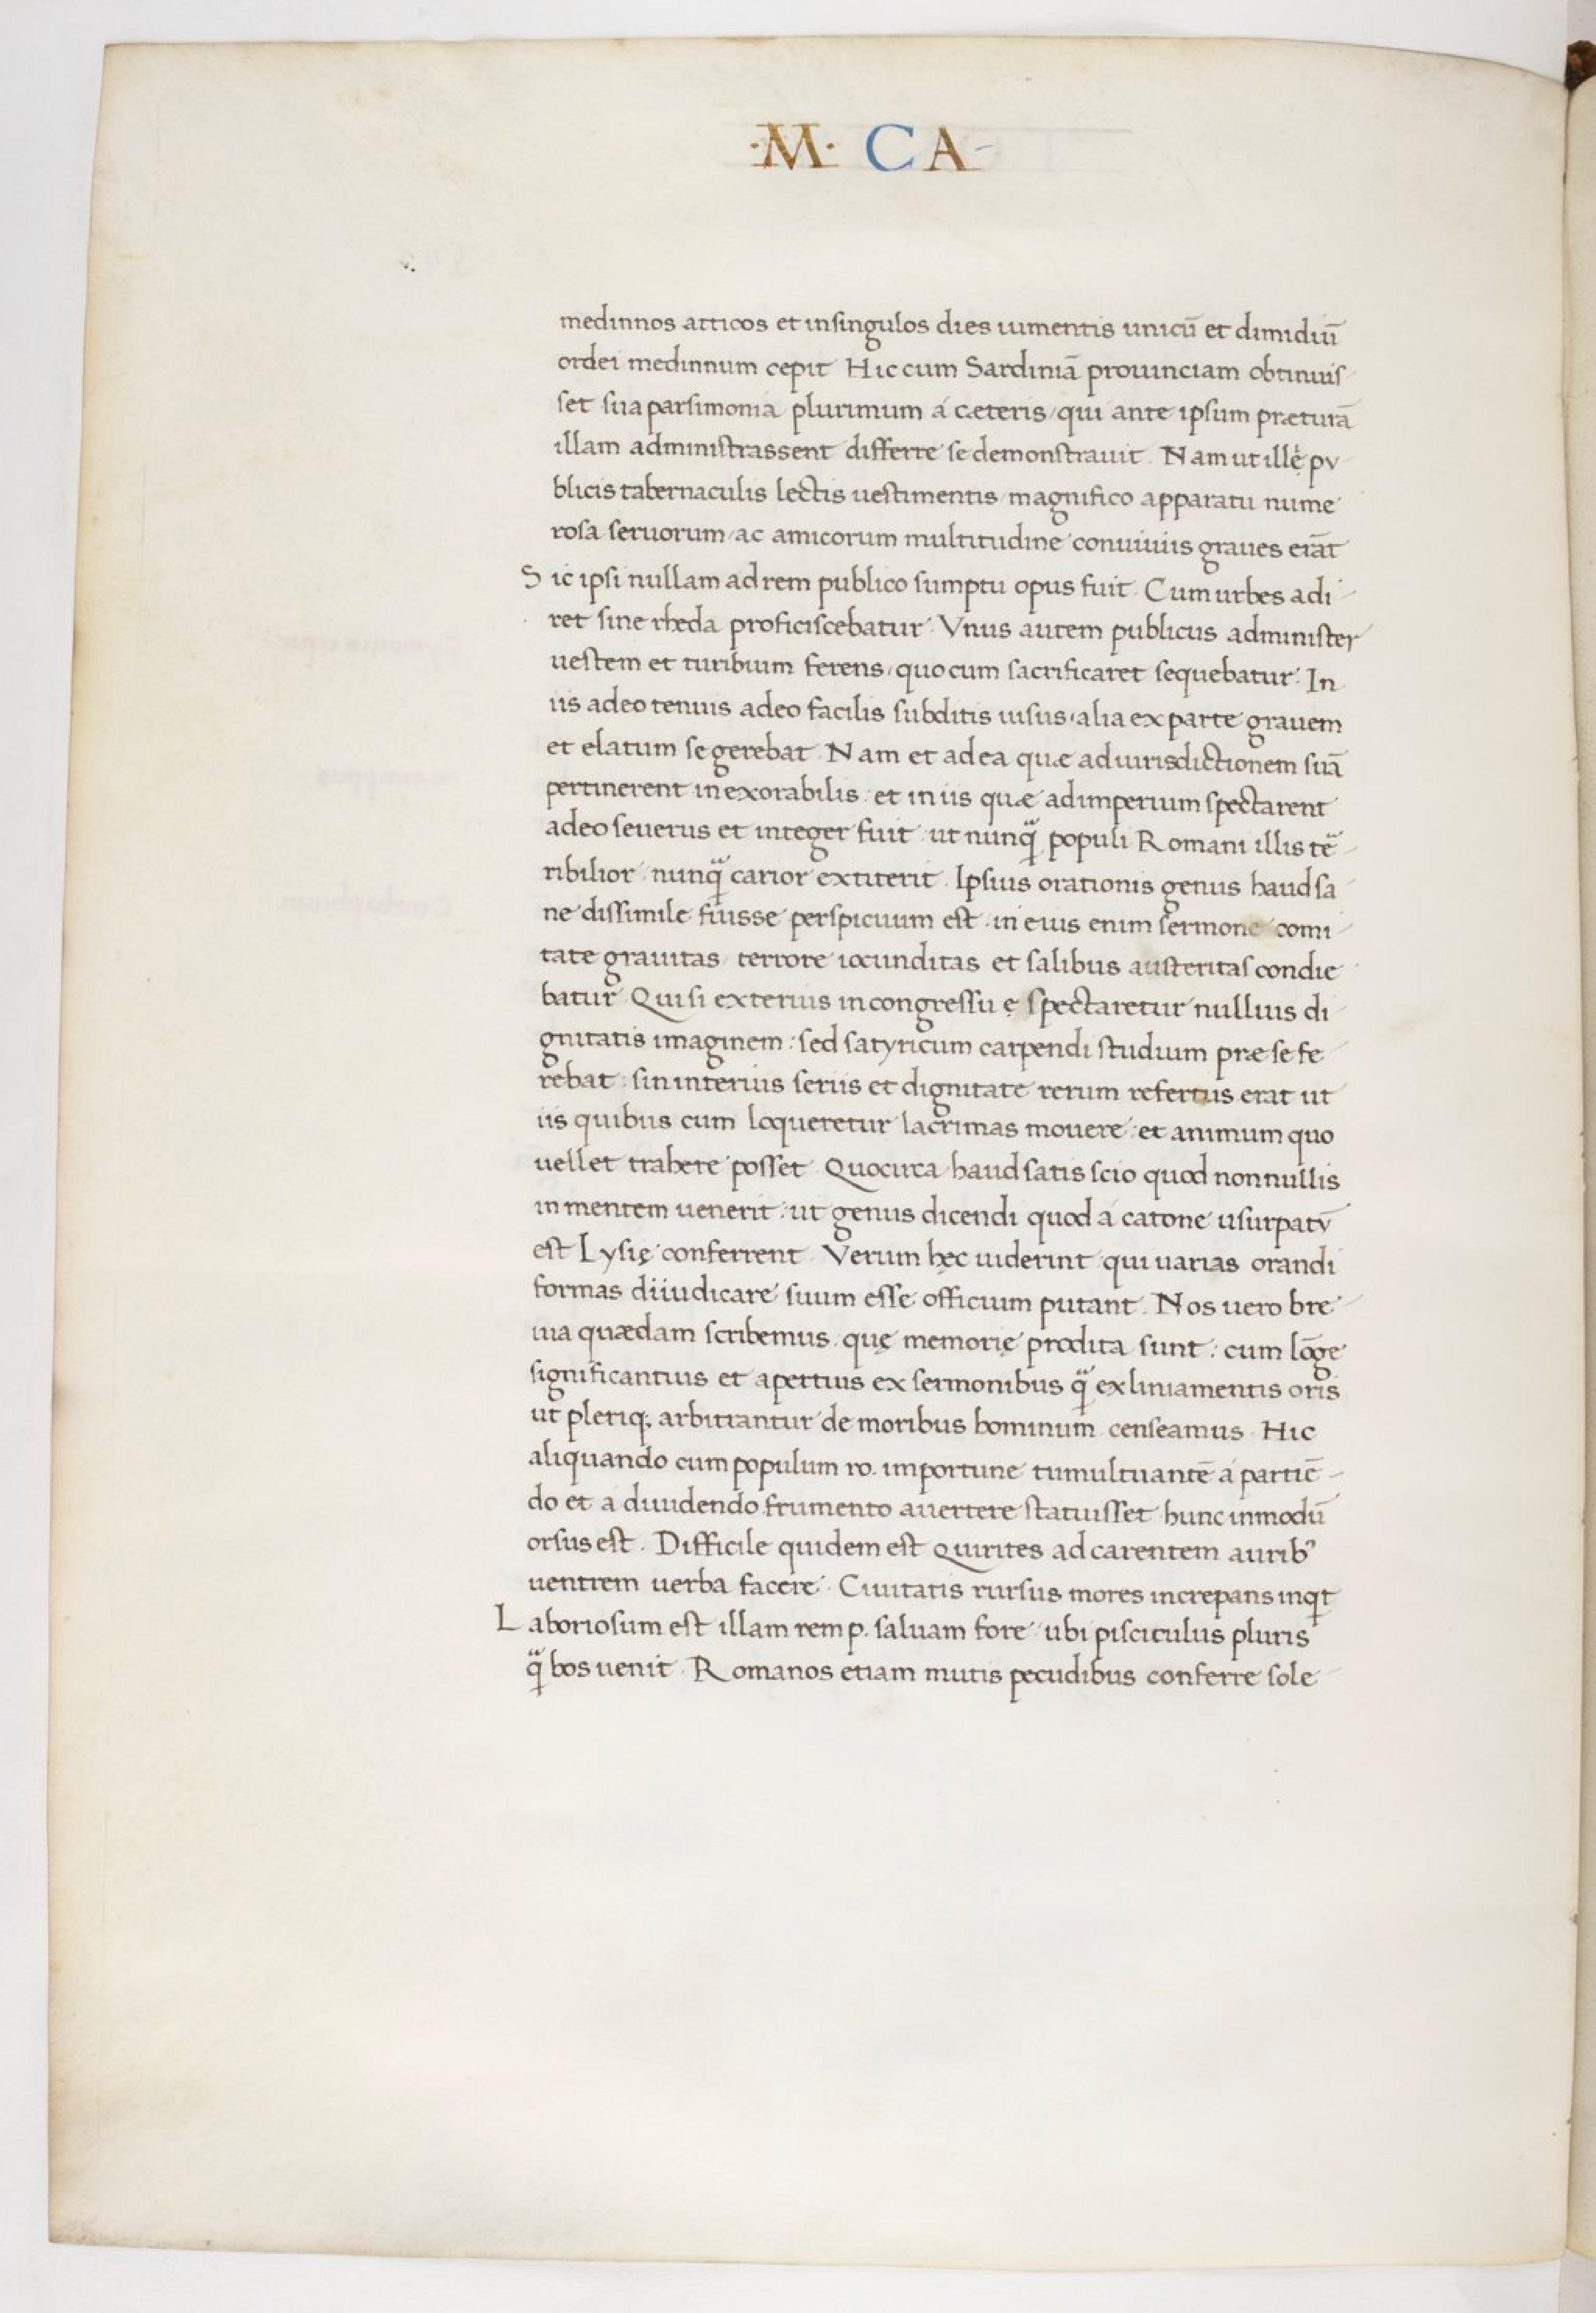 ·M· CA-
medinnos atticos et insingulos dies iumentis unicū et dimidiū
ordei medinnum cepit Hic cum Sardiniā prouinciam obtinuis
set sua parsimonia plurimum á cæteris qui ante ipsum præturā
illam administrassent differre se demonstrauit. Nam ut illę pu
blicis tabernaculis lectis uestimentis magnifico apparatu nume
rosa seruorum ac amicorum multitudine conuiuiis graues erāt
Sic ipsi nullam ad rem publico sumptu opus fuit. Cum urbes adi
ret sine rheda proficiscebatur. Vnus autem publicus administer
uestem et turibium ferens, quo cum sacrificaret sequebatur. In
iis adeo tenuis adeo facilis subditis uisus, alia ex parte grauem
et elatum se gerebat. Nam et ad ea quæ ad iurisdictionem suā
pertinerent inexorabilis: et in iis quæ ad imperium spectarent
adeo seuerus et integer fuit ut nunq̃ populi Romani illis te
ribilior nunq̃ carior extiterit. Ipsius orationis genus haud sa
ne dissimile fuisse perspicuum est. in eius enim sermone comi
tate grauitas, terrore iocunditas et salibus austeritas condie
batur. Qui si exterius in congressu ę spectaretur nullius di
gnitatis imaginem: sed satyricum carpendi studium præ se fe
rebat: sin interius seriis et dignitate rerum refertus erat ut
iis quibus cum loqueretur lacrimas mouere: et animum quo
uellet trahere posset. Quocirca haud satis scio quod nonnullis
in mentem uenerit: ut genus dicendi quod á catone usurpatū
est Lysię conferrent. Verum hęc uiderint qui uarias orandi
formas diiudicare suum esse officium putant. Nos uero bre
uia quædam scribemus, quę memorię prodita sunt: cum lōge
significantius et apertius ex sermonibus q̃ ex liniamentis oris
ut pleriq; arbitrantur de moribus hominum censeamus. Hic
aliquando cum populum ro. importune tumultuantē á partiē
do et á diuidendo frumento auertere statuisset hunc inmodū
orsus est. Difficile quidem est Quirites ad carentem aurib'
uentrem uerba facere. Ciuitatis rursus mores increpans inqt
Laboriosum est illam rem p. saluam fore ubi pisciculus pluris
q̃ bos uenit. Romanos etiam mutis pecudibus conferre sole